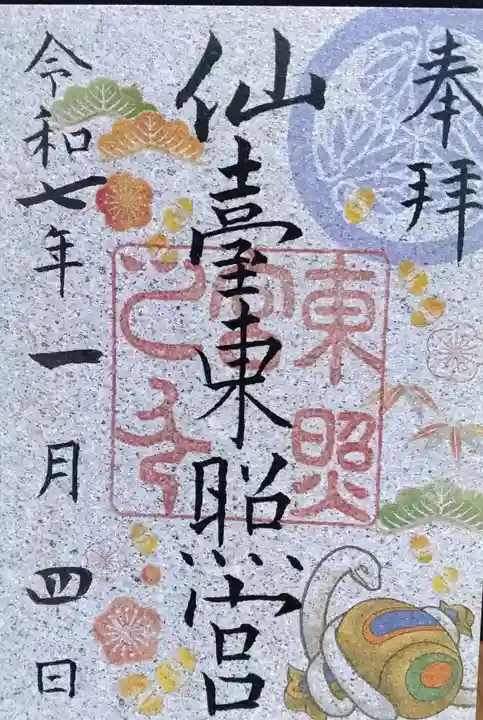 奉拝
仙臺東照宮
東照
宮
令和七年一月四日